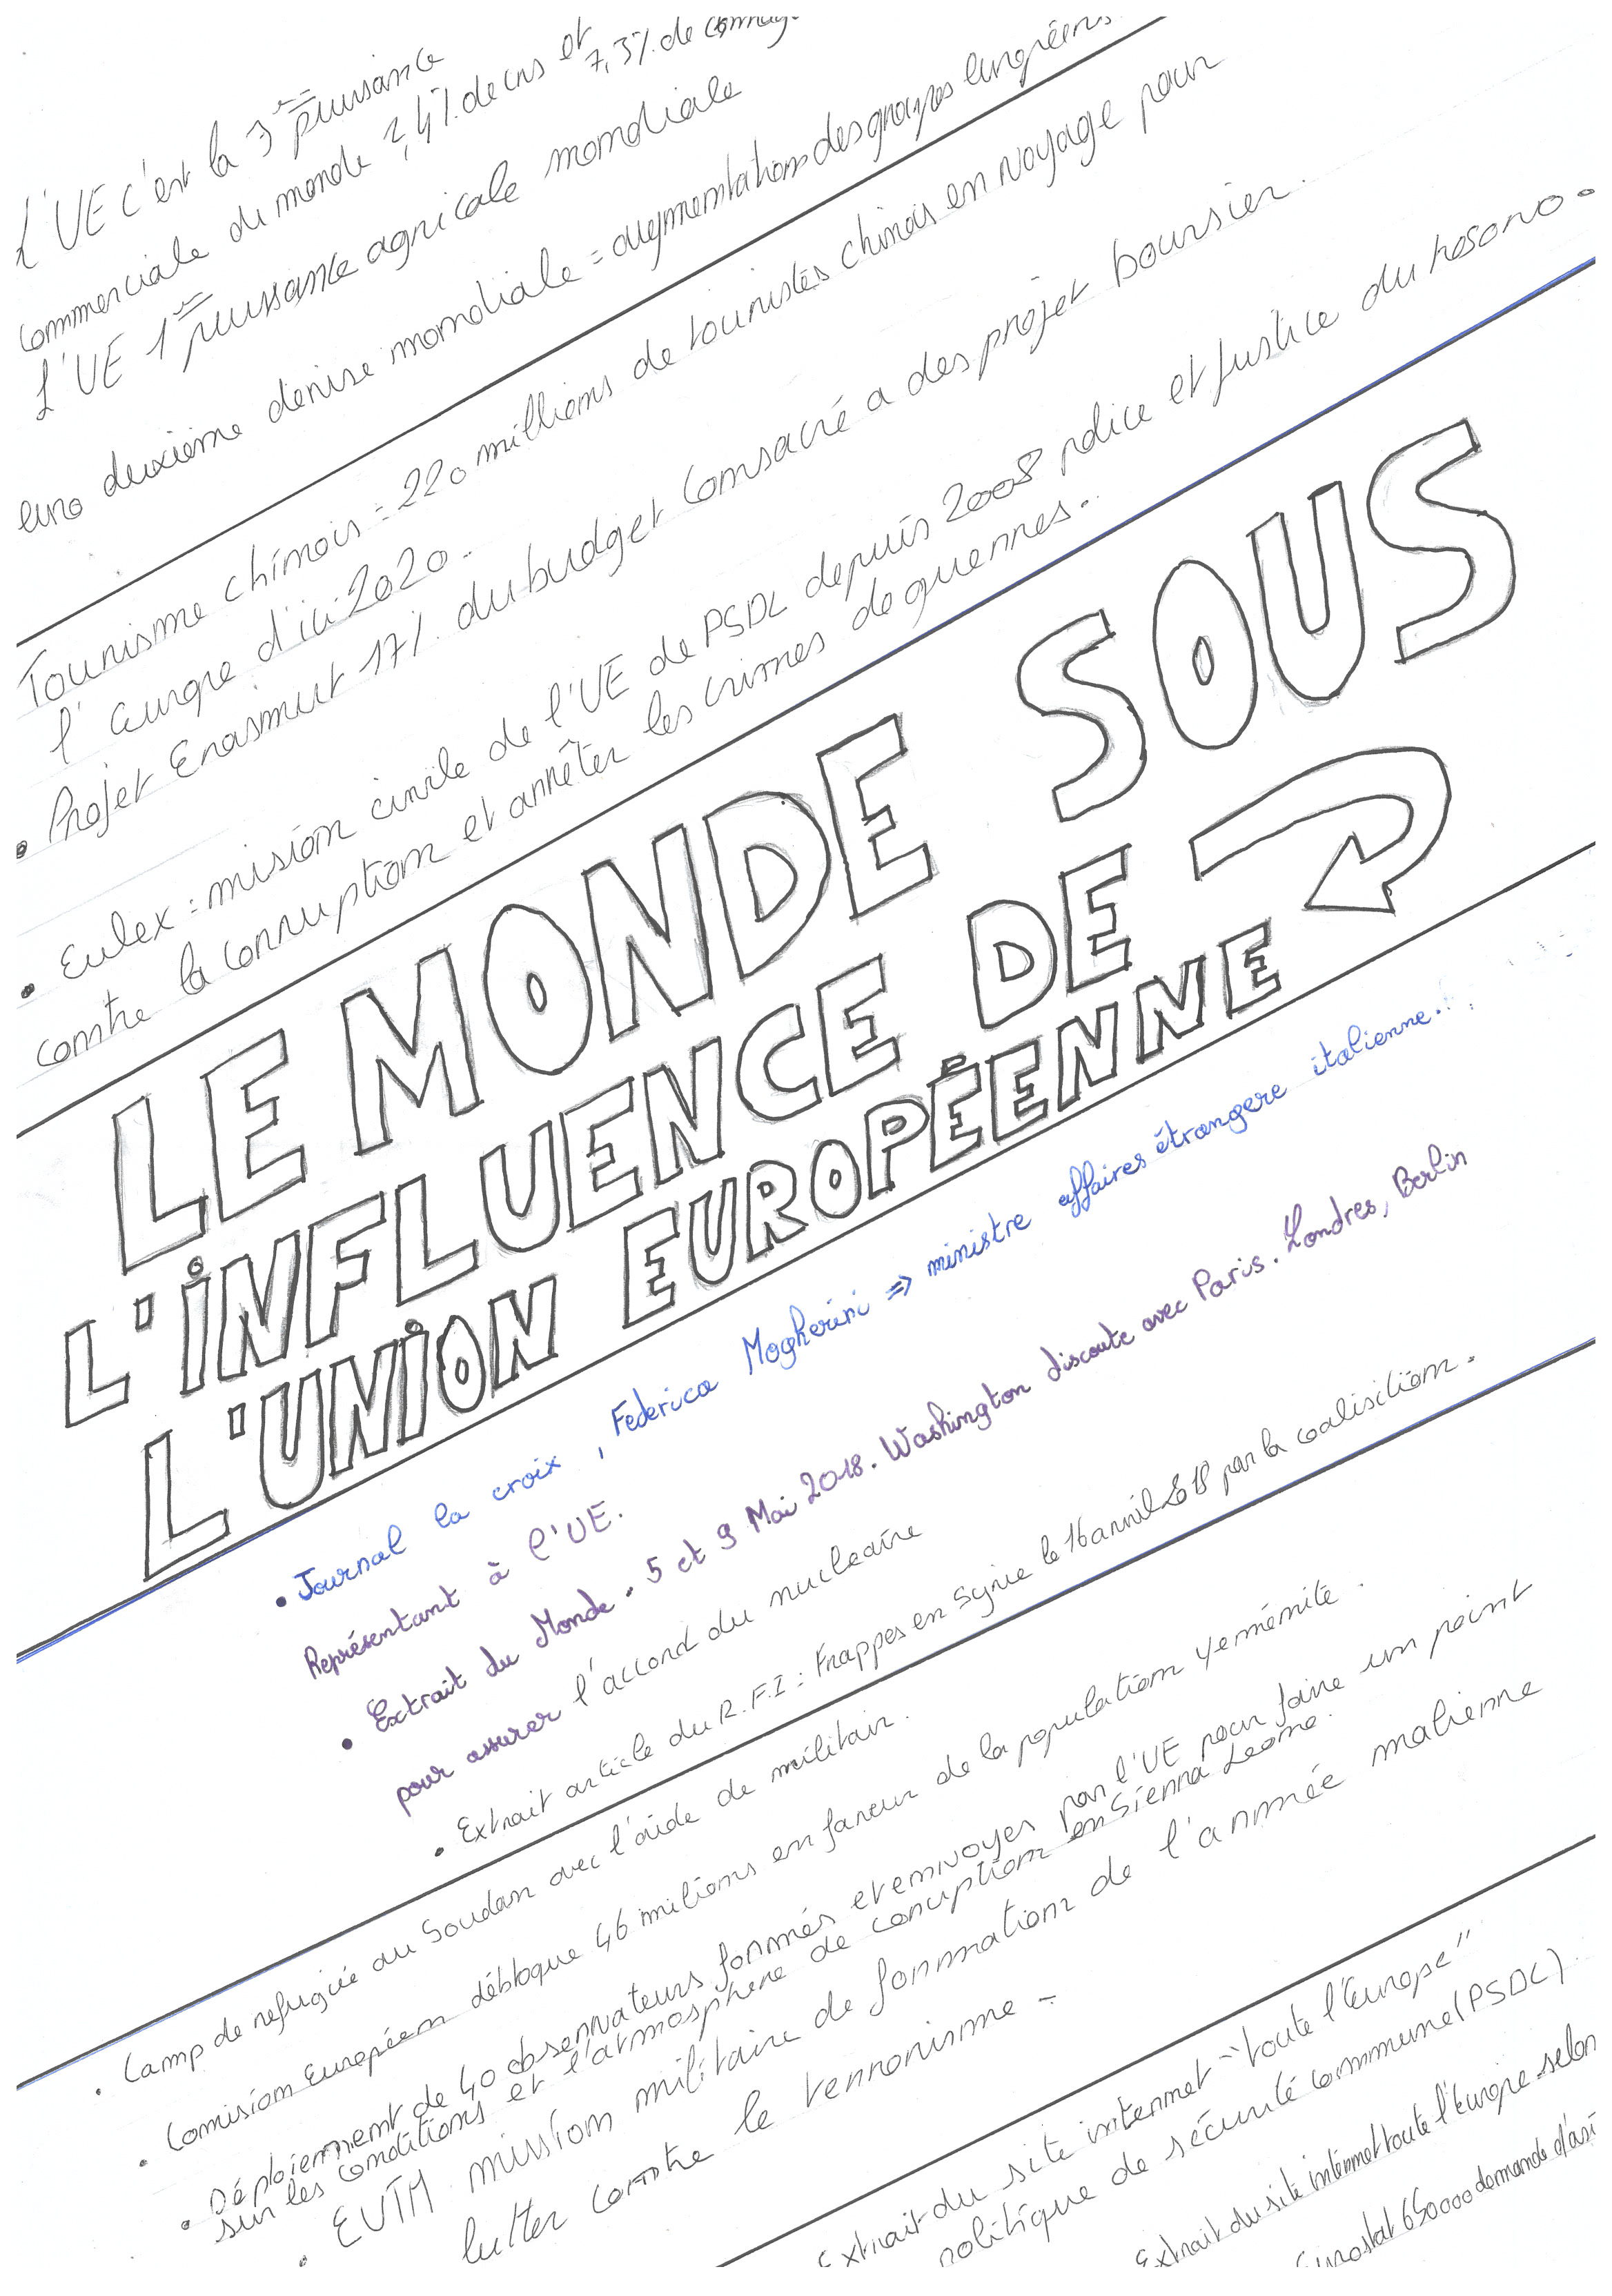 L'UE c'est la 3ème puissance
commerciale du monde 2,4% de cns et 7,3% de
L'UE 1ère puissance agricole mondiale
euro deuxième denise mondiale = augmentation des groupes européens.
Tourisme chinois = 220 millions de touristes chinois en voyage pour
l'europe d'ici 2020.
• Projet Erasmut 17% du budget consacré a des projet boursier.
• Eulex = mision civile de l'UE de PSDC depuis 2008 police et justice du kosovo.
contre la corruption et arrêter les crimes de guerres.
LE MONDE SOUS
L'INFLUENCE DE
L'UNION EUROPÉENNE
• Journal la croix, Federica Mogherini => ministre affaires étrangere italienne.
Représentant à l'UE.
• Extrait du Monde. 5 et 9 Mai 2018. Washington discoute avec Paris. Londres, Berlin
pour assurer l'accord du nucleaire
• Extrait article du R.F.I : Frappes en Syrie le 16 avril 2018 par la coalisition.
• Camp de refugiée au Soudan avec l'aide de militair.
• Comision Européen débloque 46 milions en faveur de la population yemémite.
• Déploiement de 40 observateurs formés et envoyes par l'UE pour faire un point
sur les conditions et l'atmosphere de coruption en Sierra Leone.
• EUTM mission militaire de formation de l'armée malienne
lutter contre le terrorisme.
Extrait du site internet "toute l'Europe"
politique de sécurité commune (PSDC)
Extrait du site internet toute l'europe selon
Eurostat 650000 demande d'asi